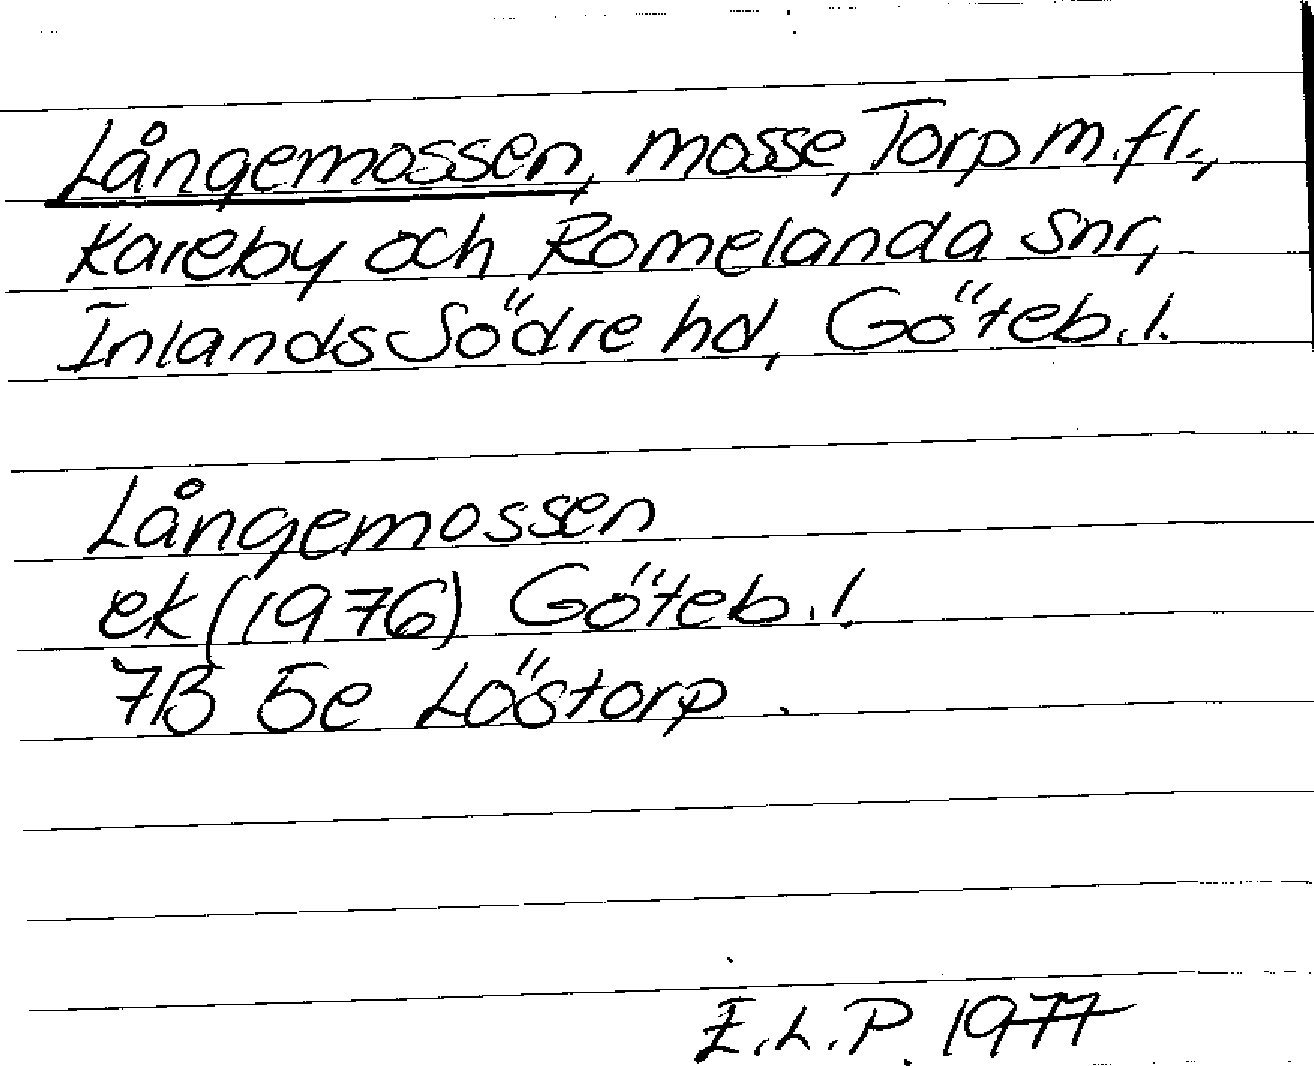 Långemossen, mosse, Torp m.fl.,
Kareby och Romelanda snr,
Inlands Södre hd, Göteb.l.
Långemossen
ek (1976) Göteb.l.
7B 5e Löstorp.
E.L.P. 1977